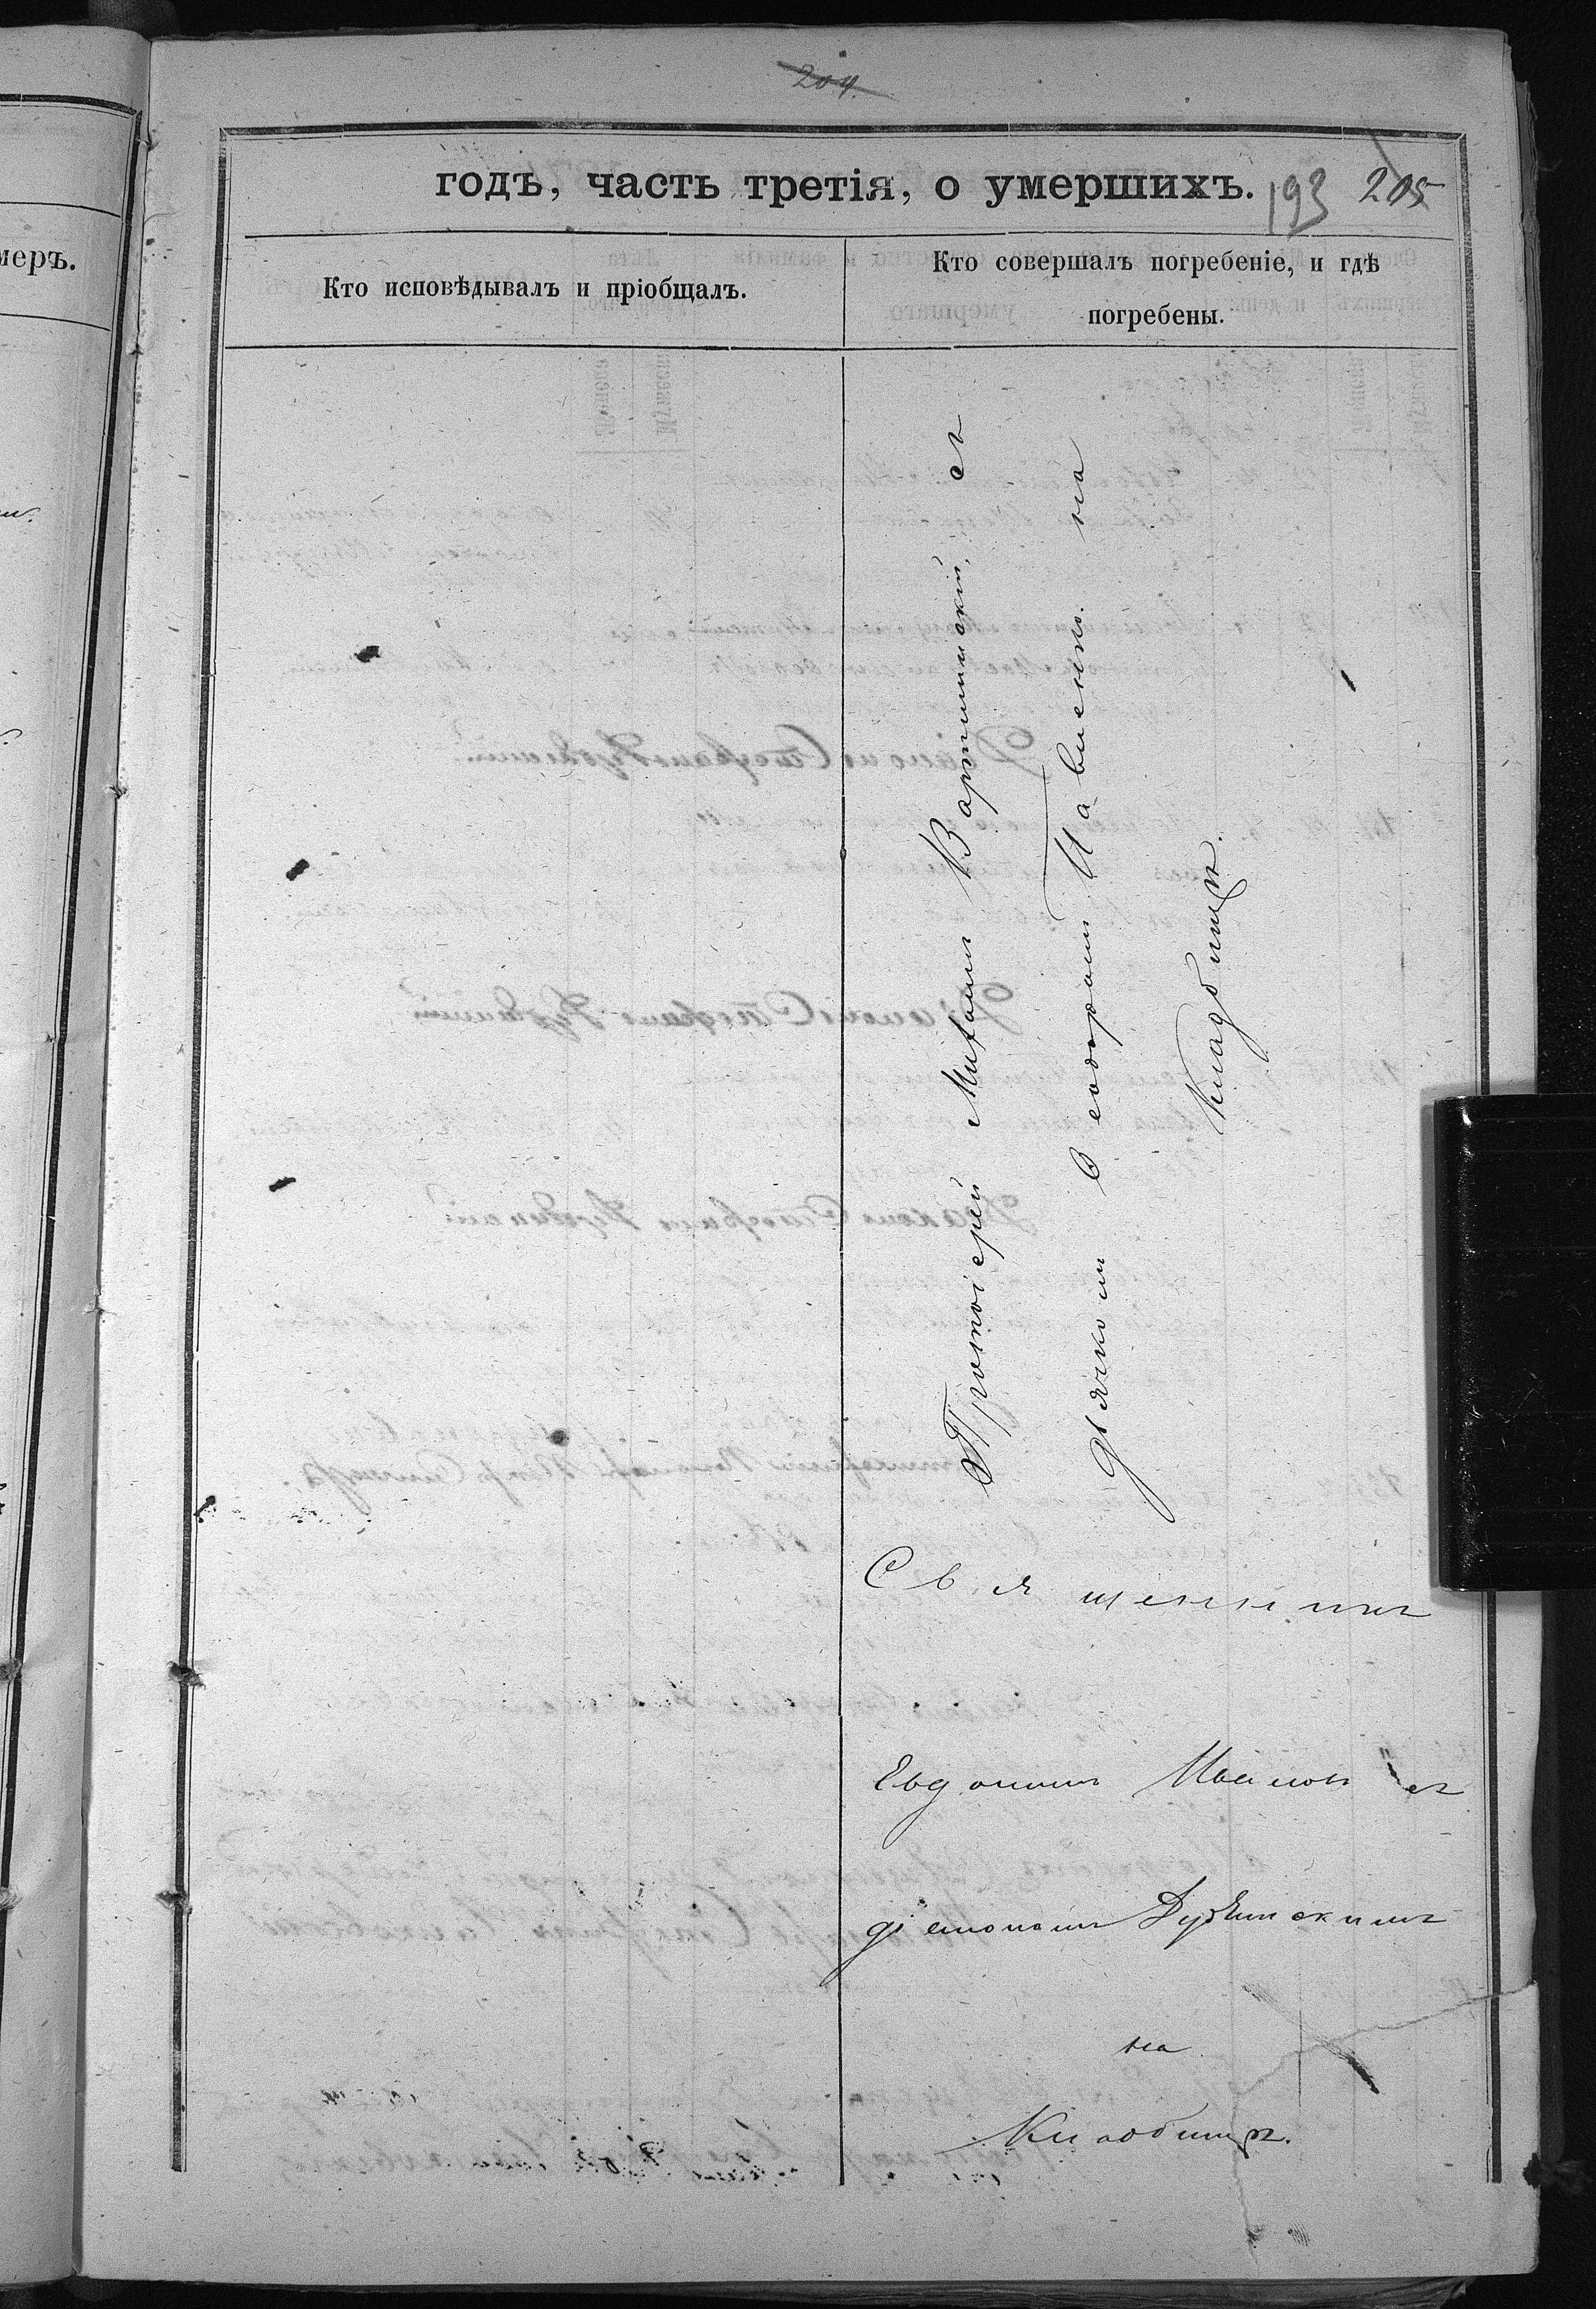 204
годъ, часть третія, о умершихъ. 193 205
меръ.
Кто исповѣдывалъ и пріобщалъ.
Кто совершалъ погребеніе, и гдѣ
погребены.
Протоіерей Михаилъ Вартминскій, съ
дьячкомъ Ѳеодоромъ Павленко. на
Кладбищѣ.
Священникъ
Евдокимъ Ивановъ съ
діакономъ
на
Кладбищѣ.